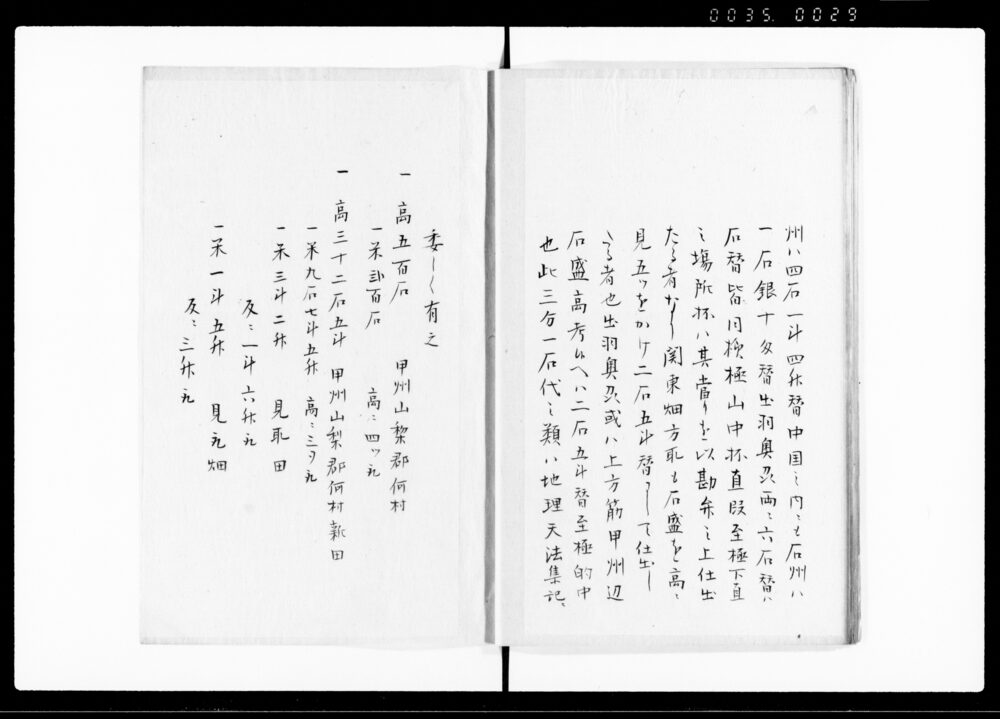 0035. 0029
州ハ四石一斗四升替中国之内ニも石州ハ
一石銀十匁替出羽奥州両ニ六石替ハ
石替皆同積極山中抔直段至極下直
之場所抔ハ其當りを以勘弁之上仕出
たる者なし関東畑方取も石盛を高ニ
見五ツをかけ二石五斗替ニして仕出し
たる者也出羽奥州或ハ上方筋甲州辺
石盛高考候へハ二石五斗替至極的中
也此三分一石代之類ハ地理天法集記ニ
委しく有之
一 高五百石 甲州山梨郡何村
一米弐百石 高ニ四ツ九
一 高三十二石五斗 甲州山梨郡何村新田
一米九石七斗五升 高ニ三ツ九
一米三斗二升 見取田
反ニ一斗六升九
一米一斗五升 見九畑
反ニ三升九